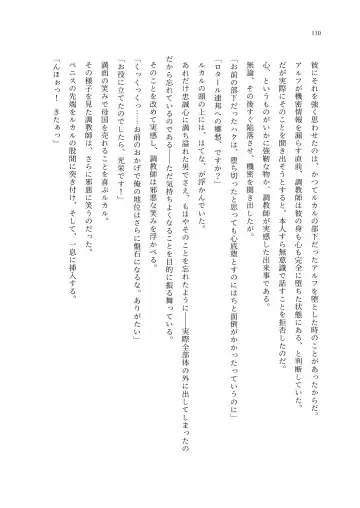 110
彼にそれを強く思わせたのは、かつてルカルの部下だったアルフを堕とした時のことがあったからだ。
アルフが機密情報を漏らす直前、調教師は彼の身も心も完全に堕ちた状態にある、と判断していた。
だが実際にそのことを聞き出そうとすると、本人すら無意識で話すことを拒否したのだ。
心、というものがいかに強靭な物か、調教師が実感した出来事である。
無論、その後すぐ陥落させ、機密を聞き出したが。
「お前の部下だったハクは、堕ち切ったと思っても心底堕とすのにはちと面倒がかかったっていうのに」
「ロタール連邦への郷愁、ですか？」
ルカルの頭の上には、はてな、が浮かんでいた。
あれだけ忠誠心に満ち溢れた男でさえ、もはやそのことを忘れたように――実際全部体の外に出してしまったの
だから忘れているのである――ただ気持ちよくなることを目的に振る舞っている。
そのことを改めて実感し、調教師は邪悪な笑みを浮かべる。
「くっくっくっ……お前のおかげで、俺の地位はさらに盤石になるな。ありがたい」
「お役に立てたのでしたら、光栄です！」
満面の笑みで母国を売れることを喜ぶルカル。
その様子を見た調教師は、さらに邪悪に笑うのだった。
ペニスの先端をルカルの股間に突き付け、そして、一息に挿入する。
「んほぉっ！　きたぁっ」